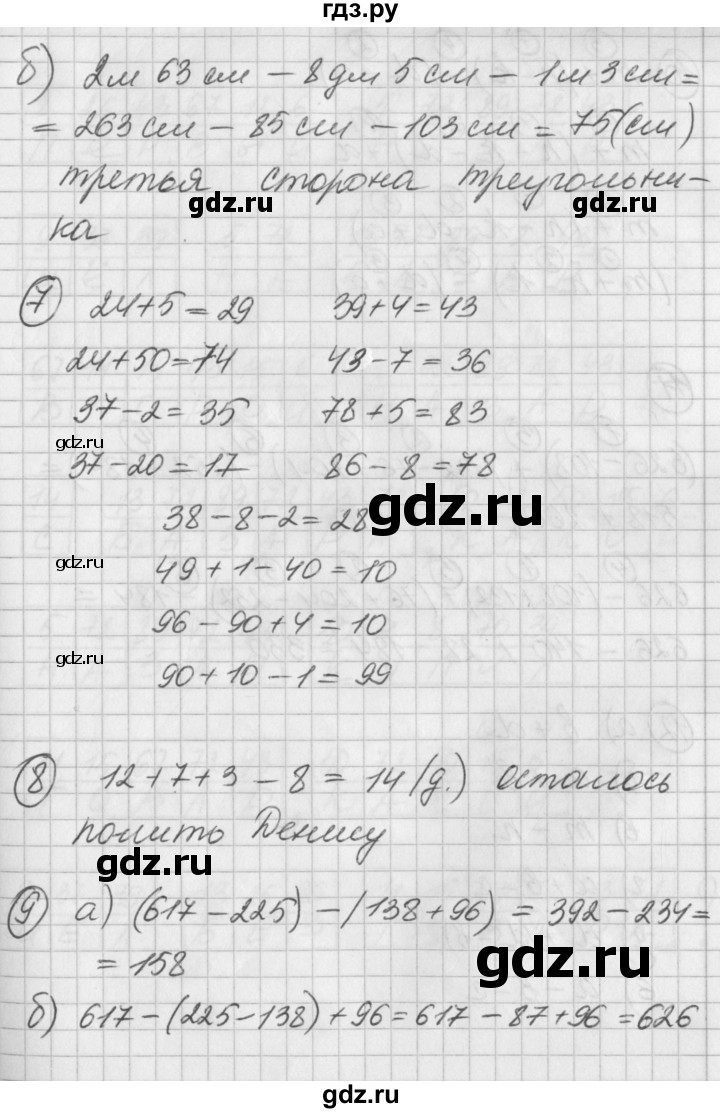 гдз.ру
б) 2м 63 см – 8 дм 5 см – 1м 3 см =
= 263 см – 85 см – 103 см = 75 (см)
третья сторона треугольни-
gdz.ru gdz.ru
ка
7 24+5=29 39+4=43
24+50=74 43-7=36
37-2=35 78+5=83
gdz.ru
37-20=17 86-8=78
gdz.ru
38-8-2=28
gdz.ru
49+1-40=10
96-90+4=10
gdz.ru
90+10-1=99
8 12+7+3-8=14 (д.) осталось
полить Денису
gdz.ru
9 а) (617-225)-(138+96)=392-234=
gdz.ru
=158
б) 617-(225-138)+96=617-87+96=626
gdz.ru